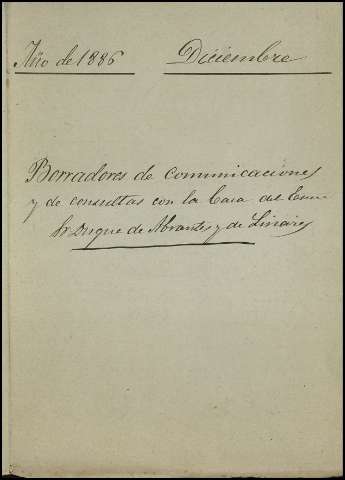 Año de 1886 Diciembre
Borradores de comunicaciones
y de consultas con la Casa del Exmo
Sr Duque de Abrantes y de Linares